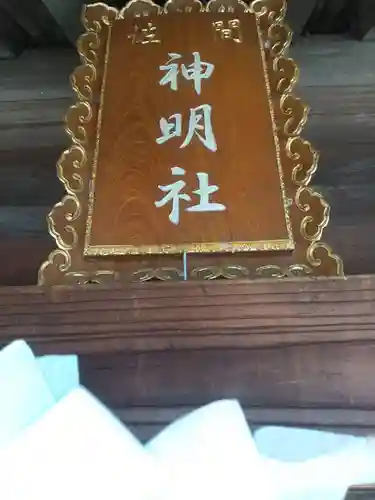 間
神明社